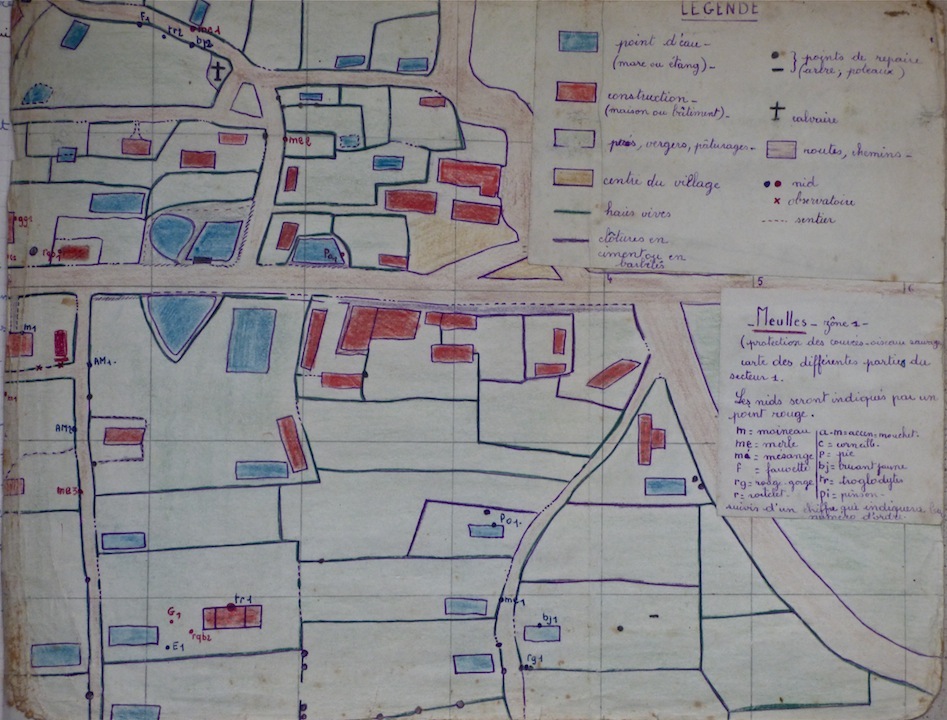 LÉGENDE
point d'eau -
(mare ou étang) -
construction -
(maison ou bâtiment) -
prés, vergers, pâturages -
centre du village
haies vives
clôtures en
ciment ou en
barbelés
} points de repaire
(arbre, poteaux)
calvaire
routes, chemins -
nid
observatoire
sentier
4
5
6
- Meulles - zône 1 -
(protection des
carte des différentes parties du
secteur 1.
Les nids seront indiqués par un
point rouge.
m = moineau
me = merle
mé = mésange
f = fauvette
rg = rouge-gorge
r = roitelet
a-m = accen-mouchet.
c = corneille.
p = pie
bj = bruant jaune
tr = troglodytes
pi = pinson -
suivis d'un chiffre qui indiquera le
numéro d'ordre.
F1
tr2
me1
bj2
me2
m1
AM1.
AM2
me3
Po1.
tr1
G1
rqb2
E1
me1
bj1
rg1